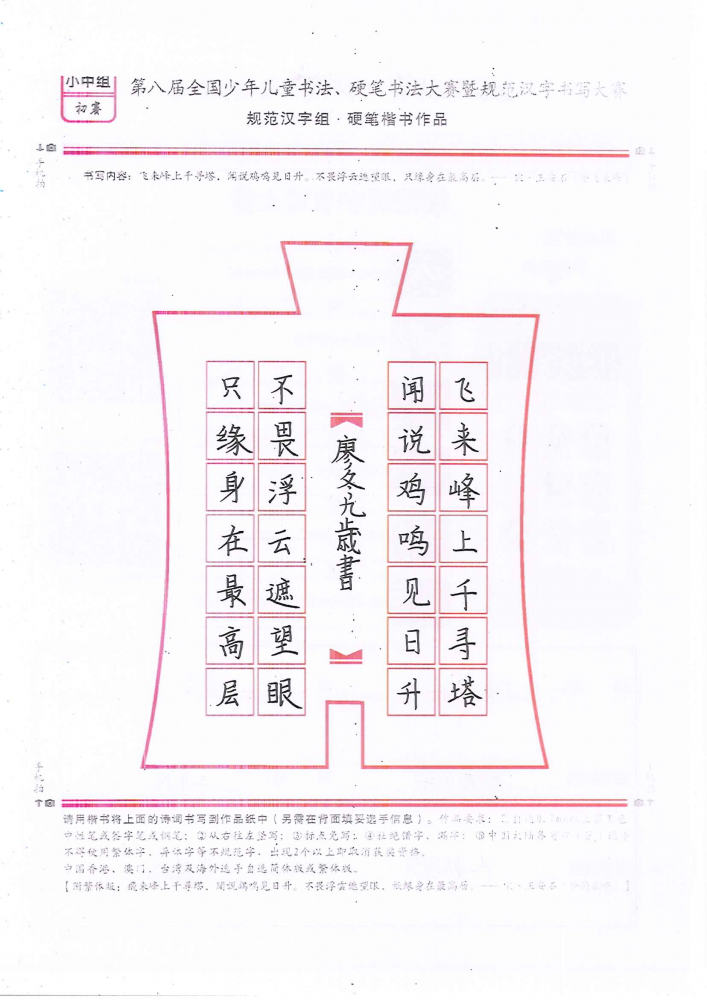 小中组
初赛
第八届全国少年儿童书法、硬笔书法大赛暨规范汉字书写大赛
规范汉字组·硬笔楷书作品
书写内容：飞来峰上千寻塔，闻说鸡鸣见日升。不畏浮云遮望眼，只缘身在最高层。
飞来峰上千寻塔
闻说鸡鸣见日升
廖冬九歲書
不畏浮云遮望眼
只缘身在最高层
请用楷书将上面的诗词书写到作品纸中（另需在背面填妥选手信息）。作品要求：
中性笔或签字笔或钢笔；②从右往左竖写；③标点免写；④杜绝错字、漏字；⑤中国大陆
不得使用繁体字、异体字等不规范字，出现2个以上即取消获奖资格。
中国香港、澳门、台湾及海外选手自选简体版或繁体版。
【附繁体版：飛來峰上千尋塔，聞說鷄鳴見日升。不畏浮雲遮望眼，